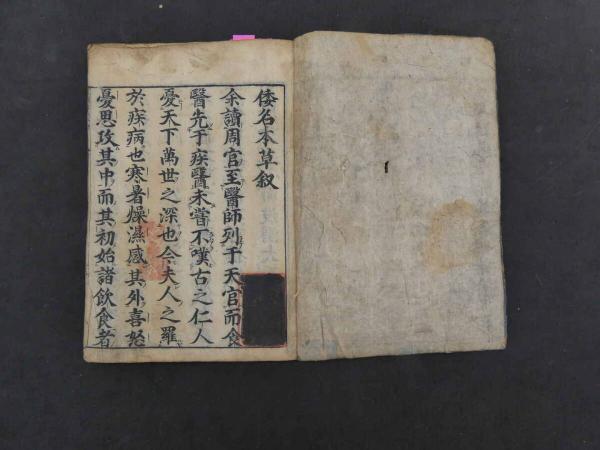 倭名本草叙
余讀周官至醫師列于天官而食
醫先于疾醫未嘗不嘆古之仁人
憂天下萬世之深也今夫人之羅
於疾病也寒暑燥濕感其外喜怒
憂思攻其中而其初始諸飲食者